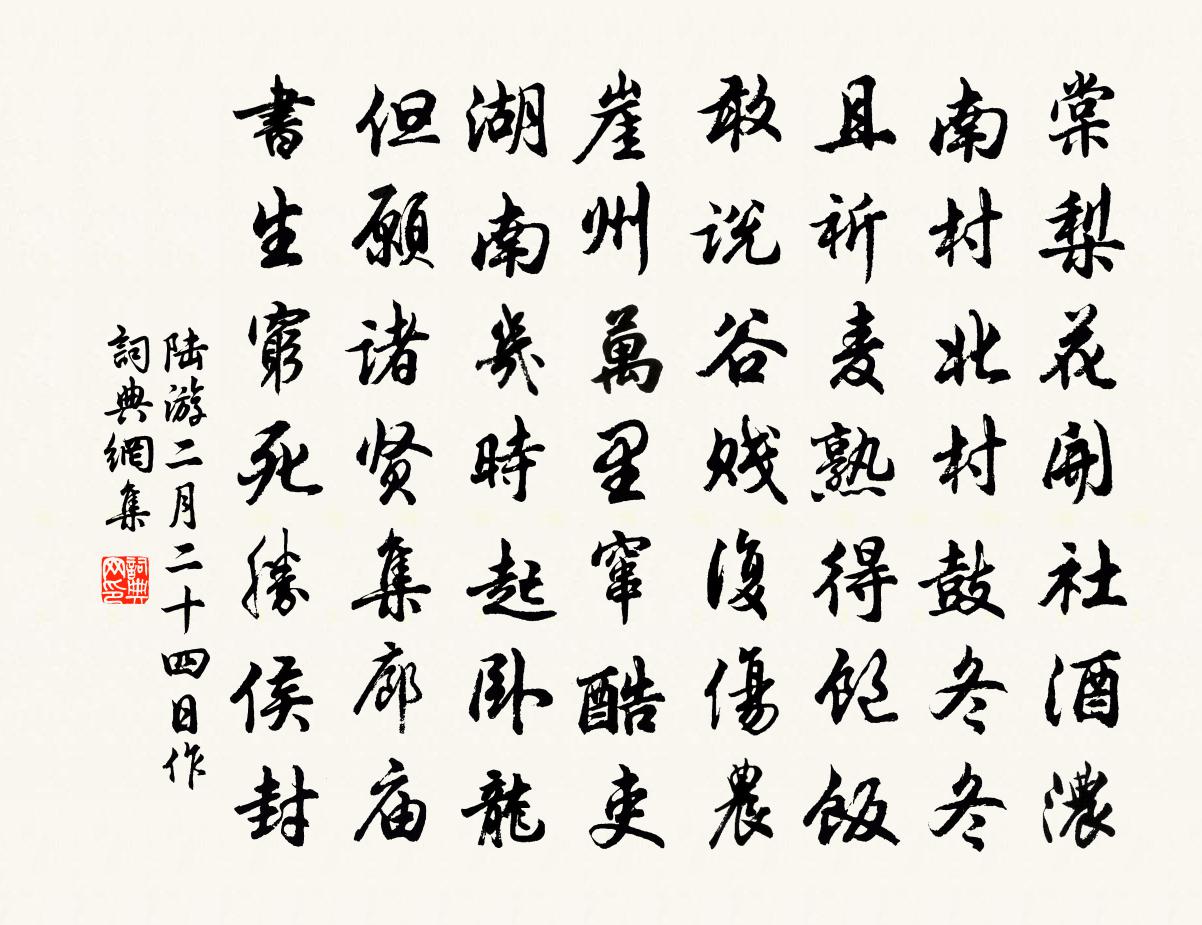 棠梨花開社酒濃
南村北村鼓冬冬
且祈麦熟得飽飯
敢说谷贱復傷農
崖州萬里窜酷吏
湖南幾時起卧龍
但願诸贤集廊庙
書生窮死勝侯封
陆游二月二十四日作
詞典網集
詞典网印